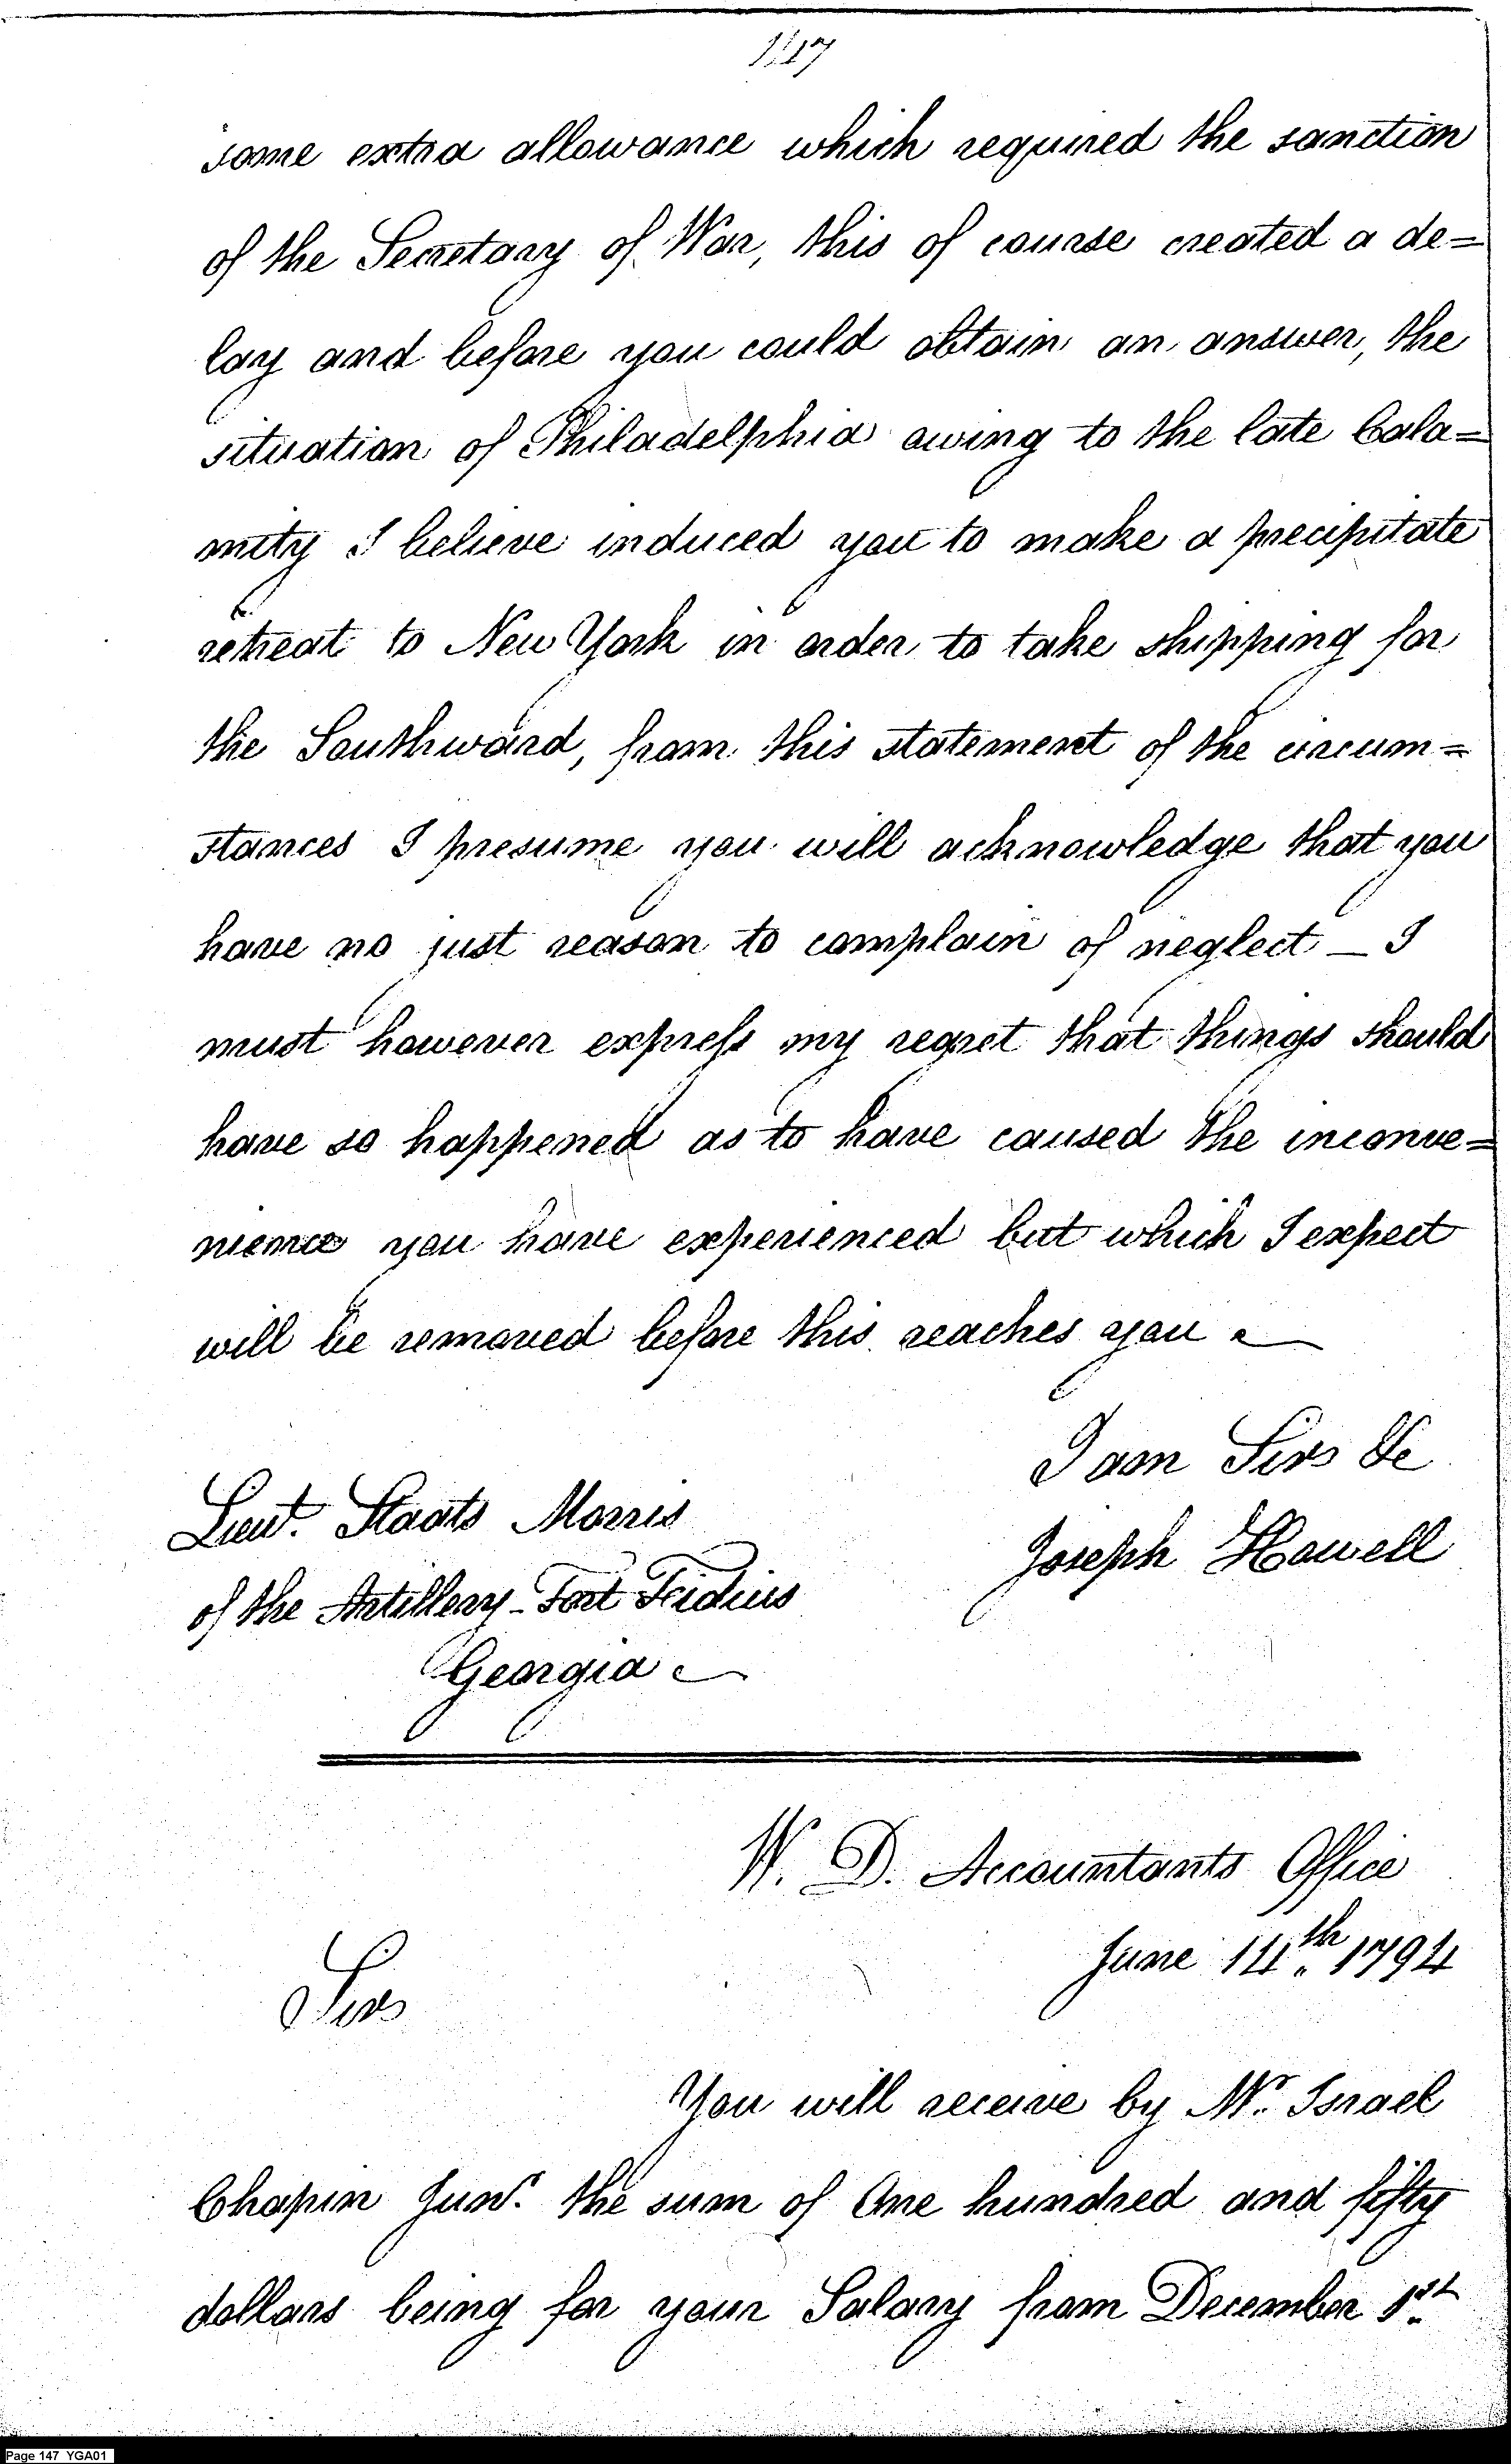 147
some extra allowance which required the sanction
of the Secretary of War, this of course created a de=
lay and before you could obtain an answer, the
situation of Philadelphia owing to the late Cala=
mity I believe induced you to make a precipitate
retreat to New York in order to take shipping for
the Southward, from this statement of the circum=
stances I presume you will acknowledge that you
have no just reason to complain of neglect — I
must however express my regret that things should
have so happened as to have caused the inconve=
nience you have experienced but which I expect
will be removed before this reaches you —
I am Sir &c
Joseph Howell
Lieut. Staats Morris
of the Artillery - Fort Fidius
Georgia —
W. D. Accountants Office
June 14th. 1794
Sir
You will receive by Mr. Israel
Chapin Junr. the sum of One hundred and fifty
dollars being for your Salary from December 1st.
Page 147 YGA01